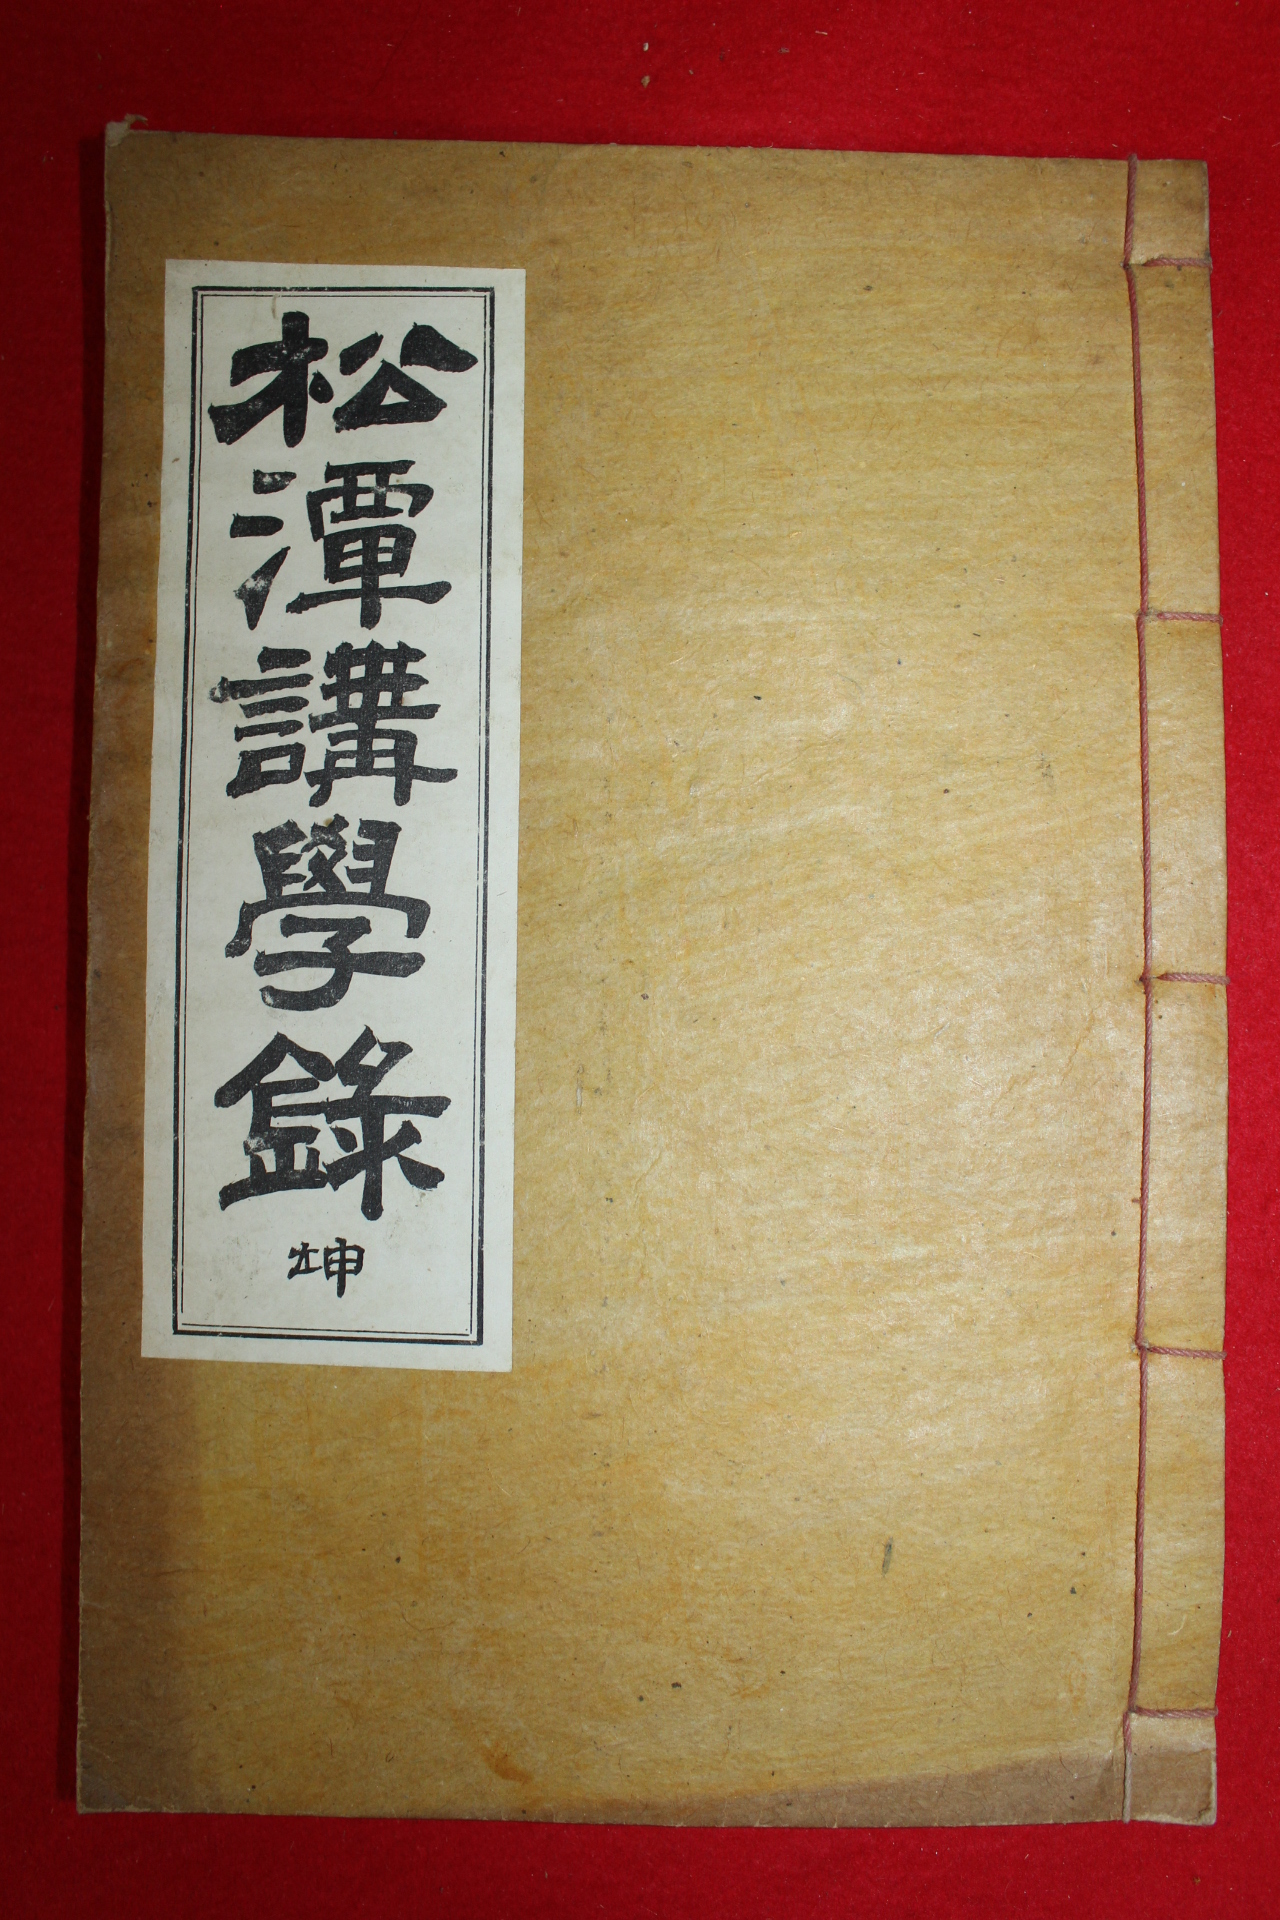 松潭講學錄
坤